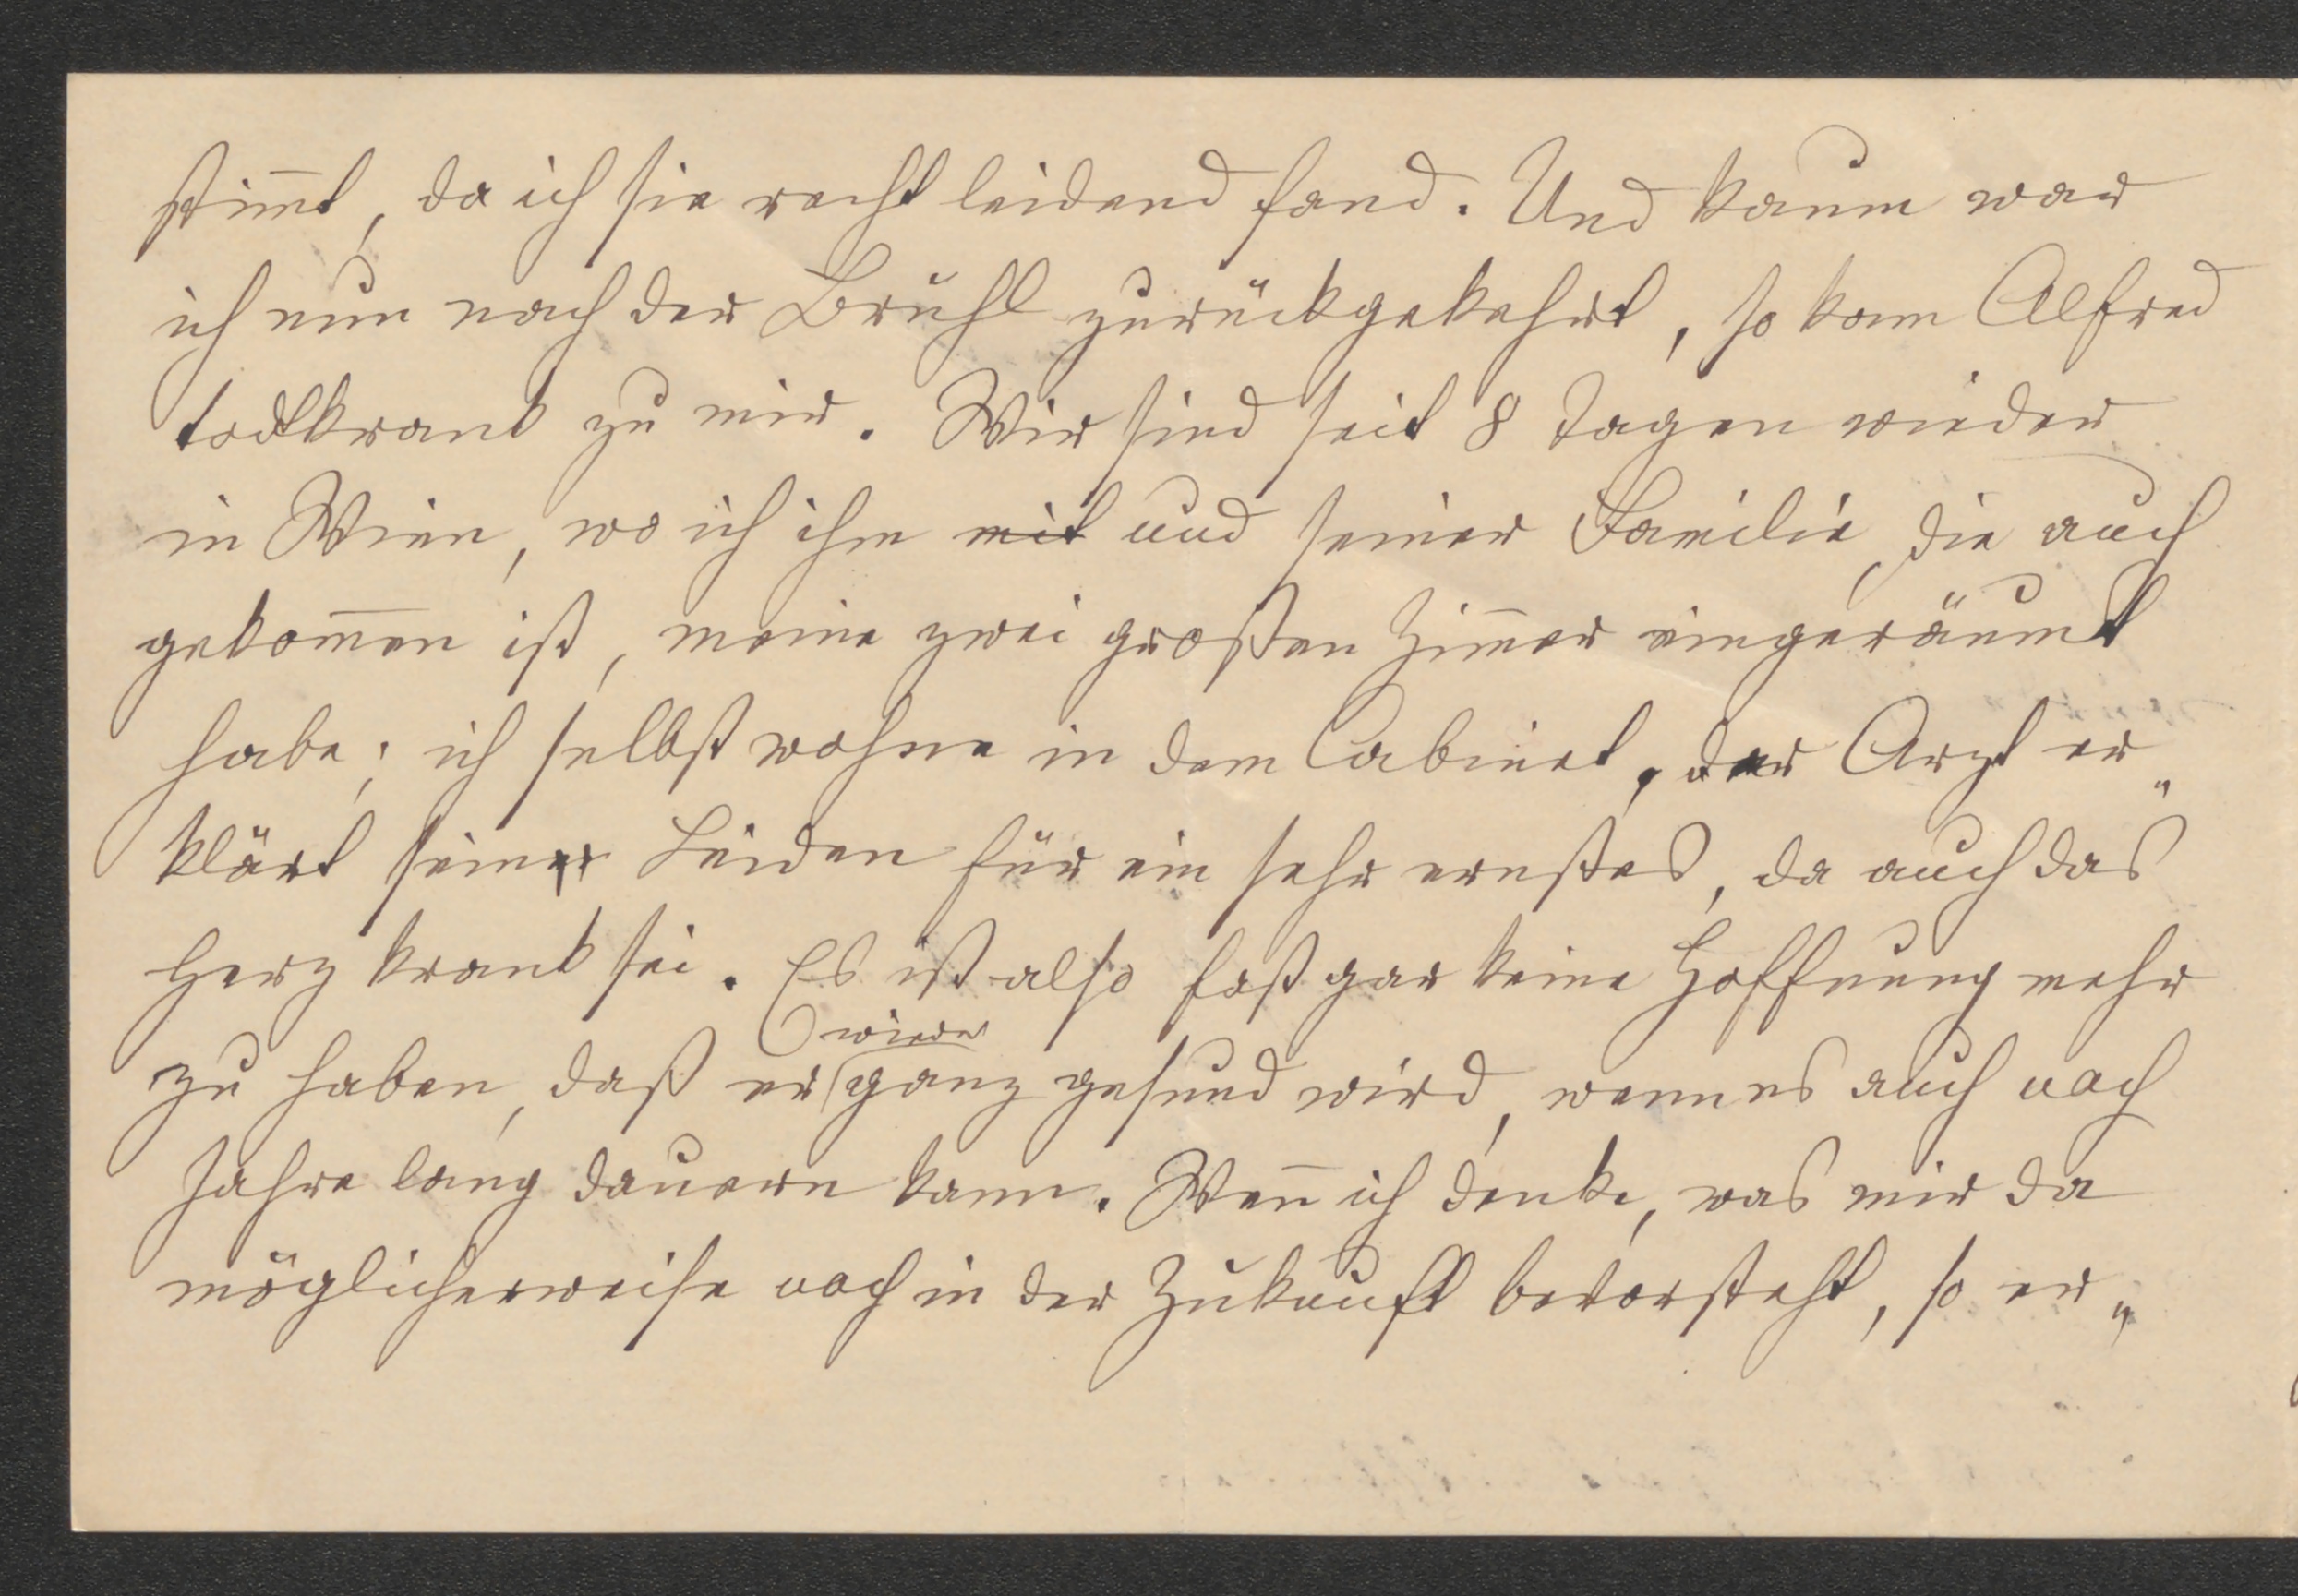 stim̅t, da ich sie recht leidend fand. Und kaum war
ich nun nach der Brühl zurückgekehrt, so kam Alfred
todtkrank zu mir. Wir sind seit 8 Tagen wieder
in Wien, wo ich ihm mit und seiner Familie, die auch
gekom̅en ist, meine zwei großen Zim̅er eingeräumt
habe; ich selbst wohne in dem Cabinet, der Arzt er„
klärt sein Leiden für ein sehr ernstes, da auch das
Herz krank sei. Es ist also fast gar keine Hoffnung mehr
wieder
zu haben, daß er ganz gesund wird, wenn es auch noch
Jahre lang dauern kann. Wen̅ ich denke, was mir da
möglicherweise noch in der Zukunft bevorsteht, so er„